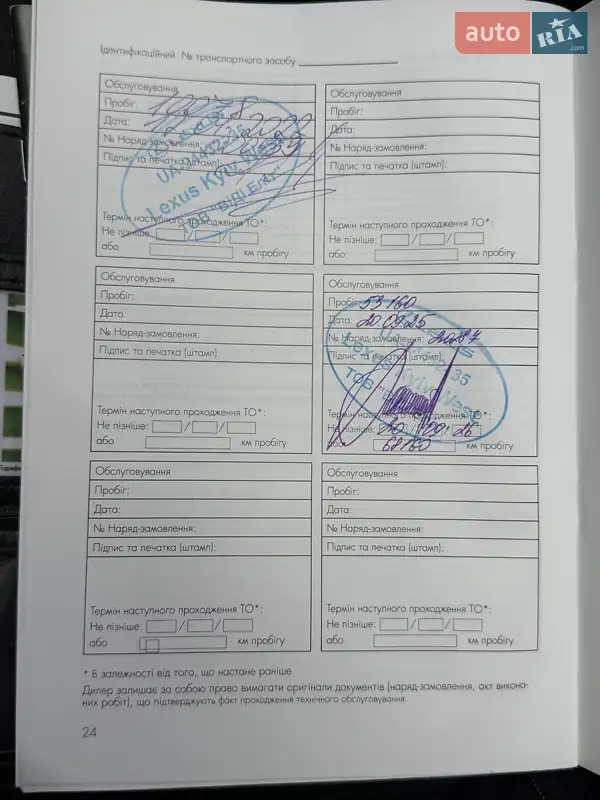 auto RIA .com
Ідентифікаційний № транспортного засобу
Обслуговування
Пробіг: 19978
Дата:
№ Наряд-замовлення:
Підпис та печатка (штамп):
Lexus Kyiv West
ТОВ "ВІДІ Елєганс"
Термін наступного проходження ТО*:
Не пізніше: / /
або км пробігу
Обслуговування
Пробіг:
Дата:
№ Наряд-замовлення:
Підпис та печатка (штамп):
Термін наступного проходження ТО*:
Не пізніше: / /
або км пробігу
Обслуговування
Пробіг:
Дата:
№ Наряд-замовлення:
Підпис та печатка (штамп):
Термін наступного проходження ТО*:
Не пізніше: / /
або км пробігу
Обслуговування
Пробіг: 53160
Дата: 20.09.25
№ Наряд-замовлення:
Підпис та печатка (штамп):
Lexus Kyiv West
ТОВ
Термін наступного проходження ТО*:
Не пізніше: 20 / 09 / 26
або 68160 км пробігу
Обслуговування
Пробіг:
Дата:
№ Наряд-замовлення:
Підпис та печатка (штамп):
Термін наступного проходження ТО*:
Не пізніше: / /
або км пробігу
Обслуговування
Пробіг:
Дата:
№ Наряд-замовлення:
Підпис та печатка (штамп):
Термін наступного проходження ТО*:
Не пізніше: / /
або км пробігу
* В залежності від того, що настане раніше
Дилер залишає за собою право вимагати оригінали документів (наряд-замовлення, акт викона-
них робіт), що підтверджують факт проходження технічного обслуговування.
24